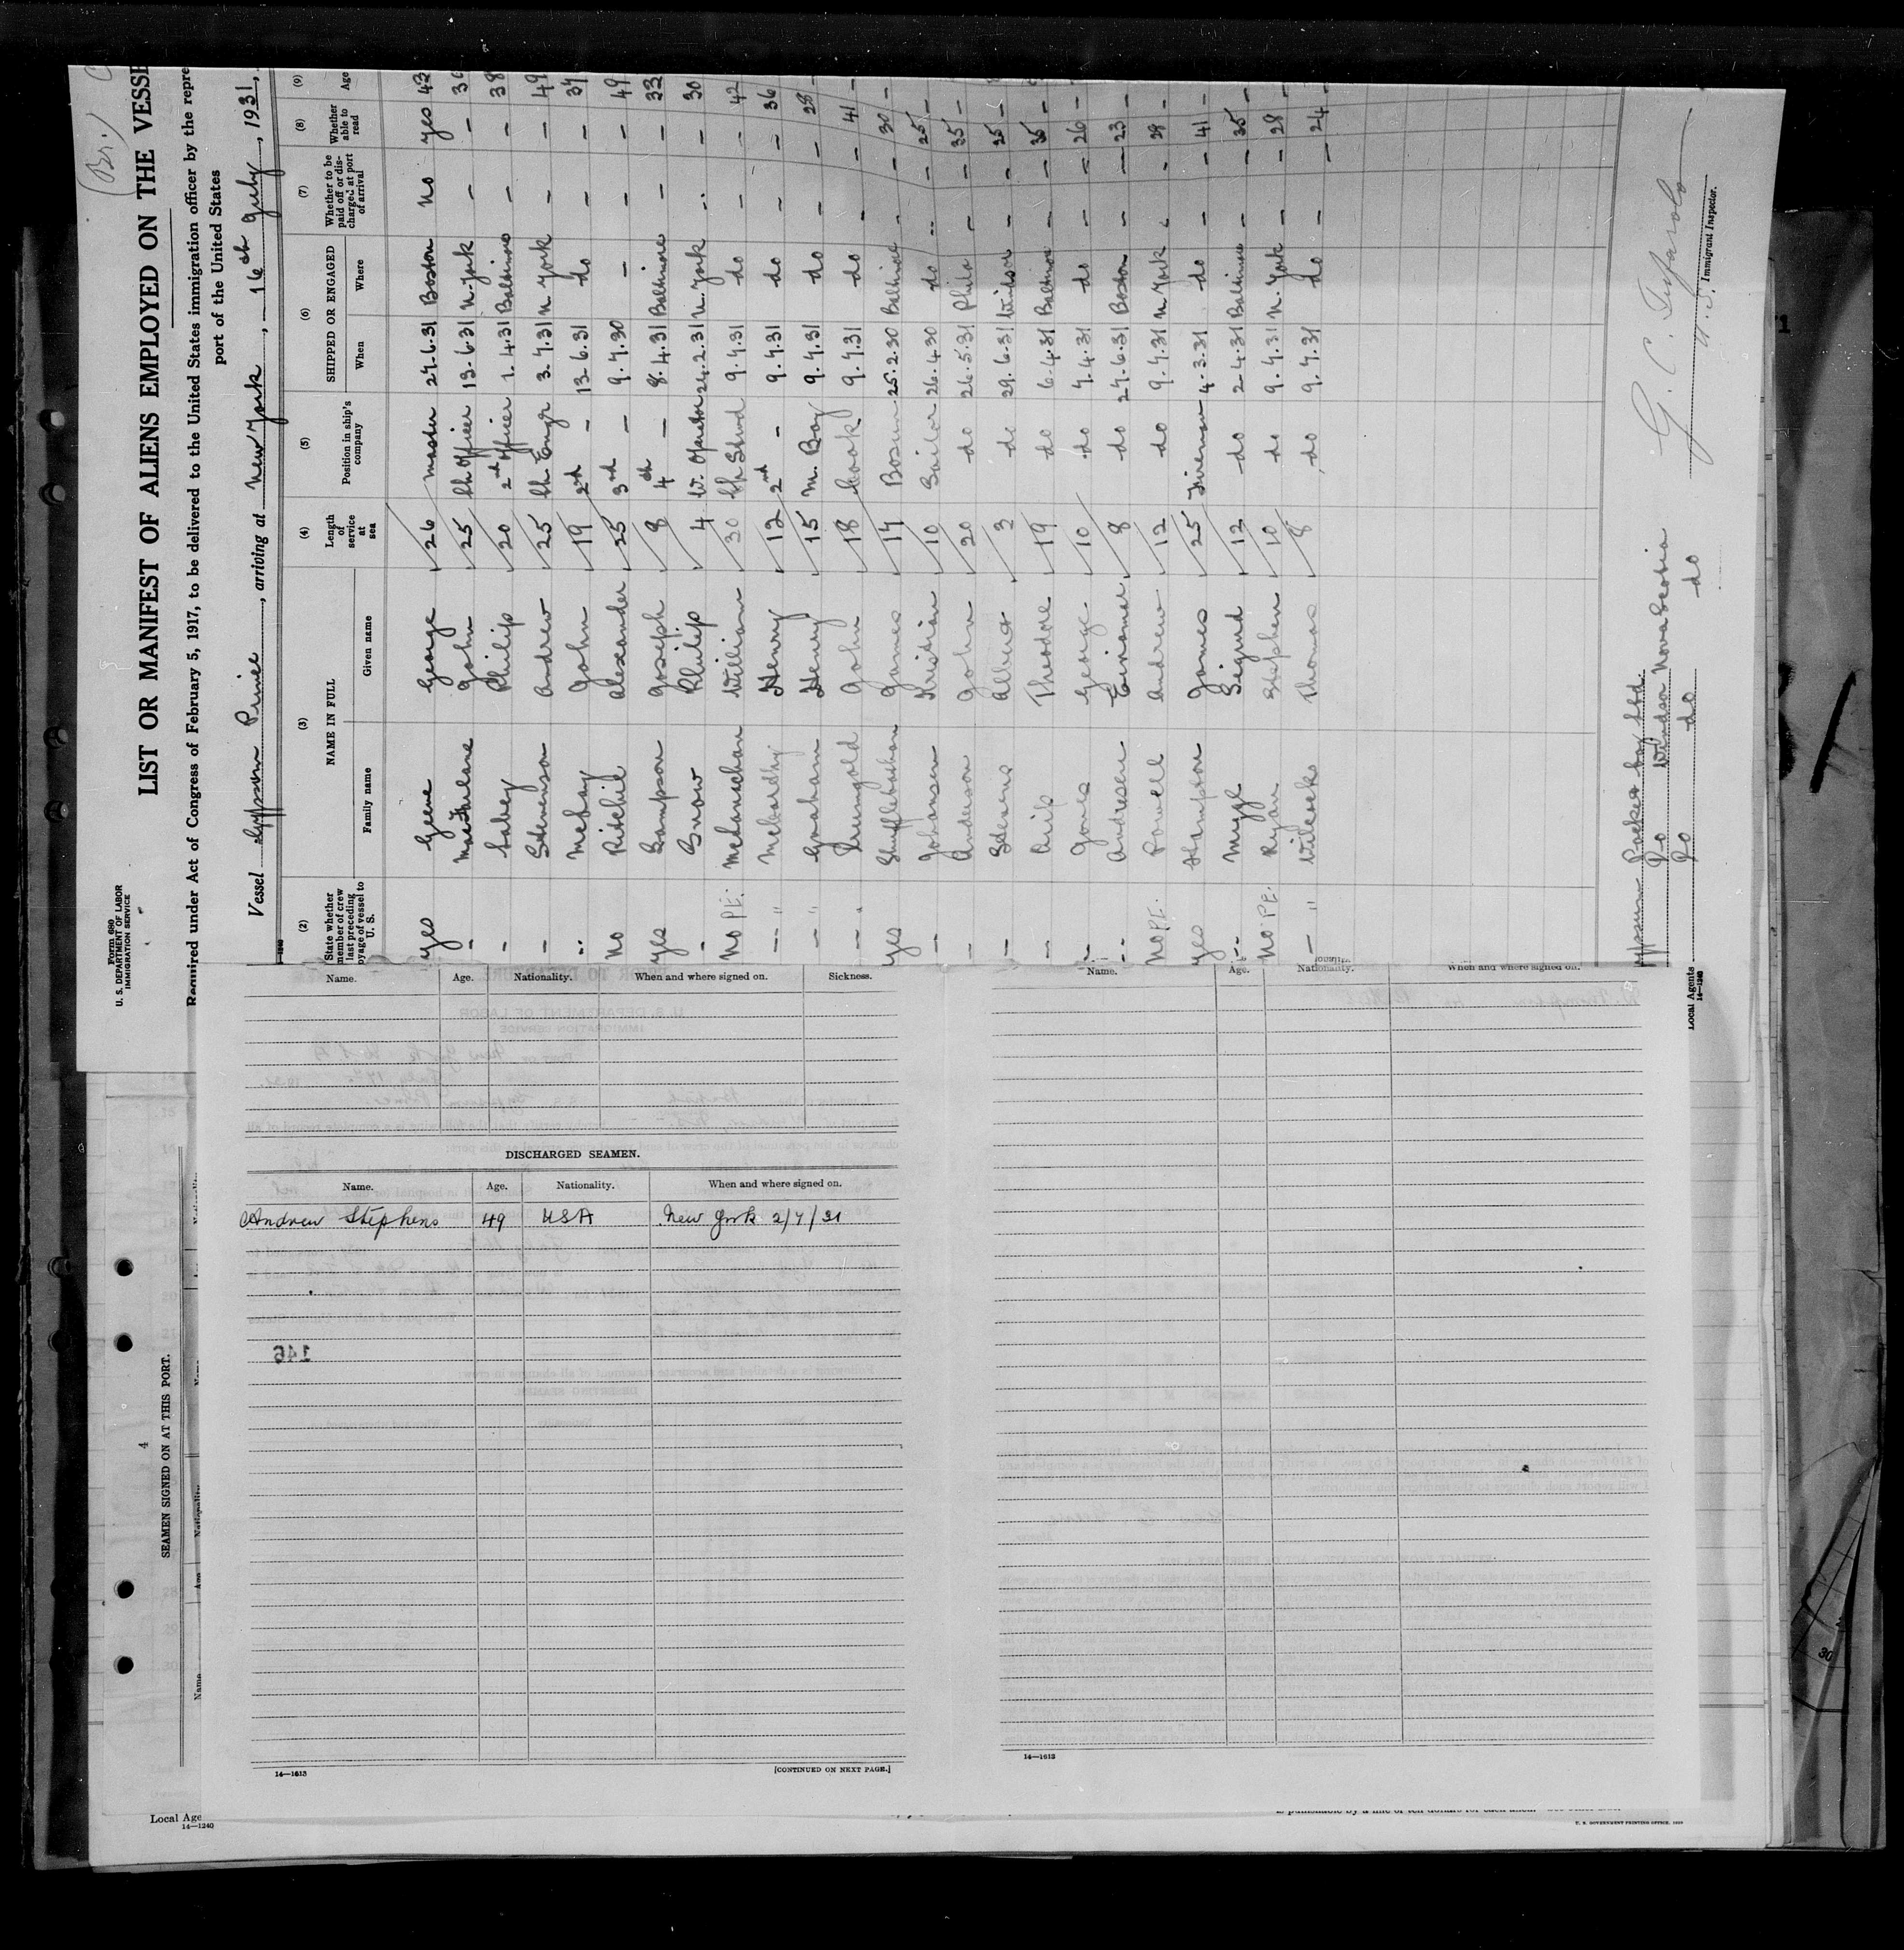 (Br.)
Form 680
U. S. DEPARTMENT OF LABOR
IMMIGRATION SERVICE
LIST OR MANIFEST OF ALIENS EMPLOYED ON THE VESSE
Required under Act of Congress of February 5, 1917, to be delivered to the United States immigration officer by the repre
port of the United States
Vessel Gypsum Prince, arriving at New York, 16th July, 1931,
(2) (3) (4) (5) (6) (7) (8) (9)
State whether member of crew last preceding voyage of vessel to U. S. NAME IN FULL Length of service at sea Position in ship's company SHIPPED OR ENGAGED Whether to be paid off or discharged at port of arrival Whether able to read Age
Family name Given name When Where
yes Greene George 26 master 27.6.31 Boston No yes 43
- MacFarlane John 25 Ch Officer 13.6.31 N. York - -
- Philip 20 2nd Officer 1.4.31 Baltimore - - 38
- Stevenson Andrew 25 Ch Engr 3.7.31 N York - - 49
John 19 2nd - 13.6.31 do - - 37
No Ritchie Alexander 25 3rd - 9.7.30 - - - 49
yes Sampson Joseph 8 4th - 8.4.31 Baltimore - - 33
- Snow Philip 4 W. Operator 24.2.31 N. York - 30
No P.E. McLanachan William 30 Ch Stewd 9.7.31 do - - 42
- " McCarthy Henry 12 2nd - 9.7.31 do - - 36
- " Graham Henry 15 M. Boy 9.7.31 do - - 28 -
- " John 18 Cook 9.7.31 do - - 41 -
yes Shufflebotham James 17 Bosun 25.2.30 Baltimore - - 30 -
- Johansen Kristian 10 Sailor 26.4.30 do - 25 -
- Anderson John 20 do 26.5.31 Phila - - 35 -
- Stevens Albert 3 do 29.6.31 Windsor - - 25 -
- Theodore 19 do 6.4.31 Baltimore - - 35 -
Jones George 10 do 7.4.31 do - - 26 -
Andresen 8 do 27.6.31 Boston - - 23 -
No P.E. Powell Andrew 12 do 9.7.31 N York - 29 -
yes Hampton James 25 Fireman 4.3.31 do - - 41 -
Sigurd 12 do 2.4.31 Baltimore - - 35 -
No P.E. Ryan Stephen 10 do 9.7.31 N. York - - 28 -
- " Wilcocks Thomas 8 do 9.7.31 do - - 24 -
Gypsum Packet Coy Ltd.
Do Windsor Nova Scotia
Local Agents Do do do
14—1240
Immigrant Inspector.
Name. Age. Nationality. When and where signed on. Sickness.
DISCHARGED SEAMEN.
Name. Age. Nationality. When and where signed on.
Andrew Stephens 49 USA New York 2/7/31
146
14—1613
[CONTINUED ON NEXT PAGE.]
Name. Age. Nationality. When and where signed on.
14—1613
4
SEAMEN SIGNED ON AT THIS PORT.
Name
Local Age
14—1240
is punishable by a fine of ten dollars for each alien.
U. S. GOVERNMENT PRINTING OFFICE
30